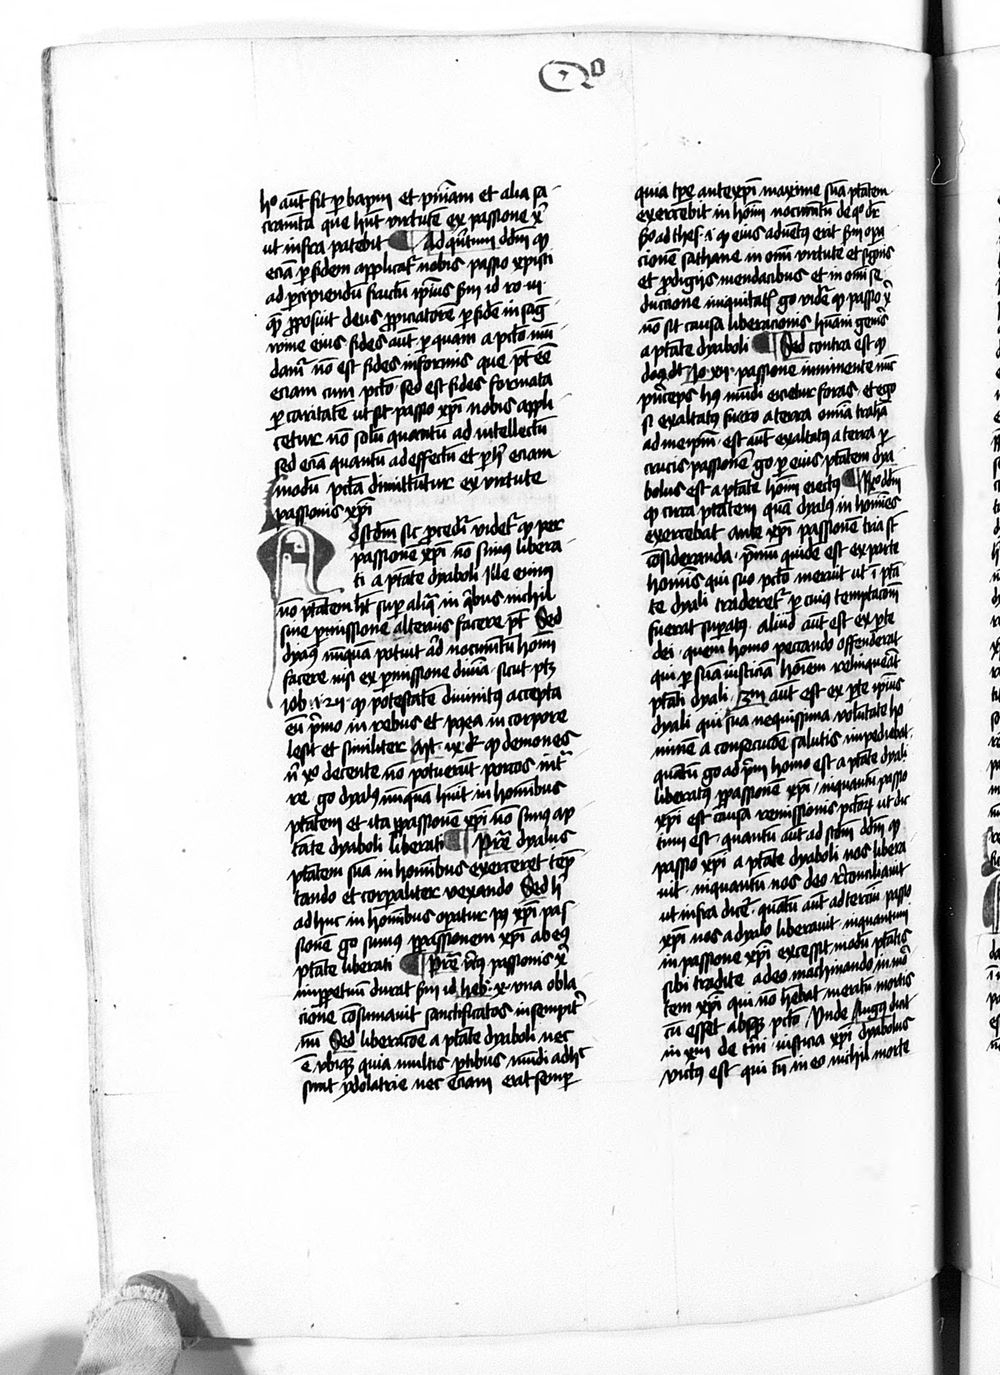 Qº
hº aūt fit ꝑ baptm̄ et pn̄iam et alia sa
cramēta que hn̄t virtutē ex passione xᵖⁱ
ut infra patebit Ad quītum dōm ꝙ
eciā ꝑ fidem applicatᵣ nobis passio xp̄isti
ad ꝑcipiendū fructū ip̄ius scd̄m id ro iii
quē ꝓposuit deus ꝓpiciatorē ꝑ fidē in sāg
wine eius fides aūt ꝑ quam a pctō mū
damᵣ nō est fides informis que pt̄ eē
eciam cum pctō sed est fides formata
ꝑ caritatē ut sit passio xp̄i nobis appli
cetur nō solū quantū ad intellectū
sed eciā quantū ad effectū et ꝑ hᶜ eciam
modū pctā dimittūtur ex virtute
passionis xp̄i
Ad scd̄m sic ꝓceditᵣ videtᵣ ꝙ per
passionē xp̄i nō simus libera
ti a ptātē dyaboli Ille enim
nō ptātem hēt suꝑ aliqᵃ in qⁱbus nichil
sine ꝑmissionē alterius facere pt̄ Sed
dyalꝰ nūquā potuit ad nocumētū hoīm
facere nisi ex ꝑmissione diuīa sicut ptꝫ
iob i et ii ꝙ potestate diuinitꝰ accepta
eū pⁱmo in rebus et postea in corpore
lesit et similiter mt viii dr̄ ꝙ demones
nⁱ xo decente nō potuerūt porcos intᵃ
re go dyalꝰ nūquā huit in hominibus
ptātem et ita ꝑ passionē xp̄i nō simꝰ a p
tate dyaboli liberati Pret̄ dyalus
ptātem suā in hominibus exercet tēp
tando et corporaliter vexando Sed hᶜ
adhuc in hominibus oꝑatur pꝰ xp̄i pas
sionē go simus ꝑ passionem xp̄i ab eꝰ
ptātē liberati Pret̄ vⁱtꝰ passionis xᵖⁱ
in ꝑpetuū durat scd̄m id heb x vna obla
cione cōsumauit sanctificatos in sempitᵣ
nū Sed liberacōe a ptātē dyaboli nec
ē vbiqꝫ quia multis ꝑtibus mūdi adhᶜ
sunt ydolatrie nec eciam erit semꝑ
quia tꝑe antexp̄i maxime suā ptātem
exercebit in hoīm nocumētū de qº dr̄
scd̄o ad thes i ꝙ eius aduentꝰ erit scd̄m oꝑa
cionē sathane in omī virtute et signis
et ꝓdigiis mendacibus et in omi se
ductione iniquitatis go videtᵣ ꝙ passio xᵖⁱ
nō sit causa liberacionis hūani genꝫis
a ptātē dyaboli Sed contra est ꝙ
dns dt̄ Jo xii passione imminente nūc
pⁱnceps hꝰ mūdi eicietur foras et ego
si exaltatꝰ fuero a terra omīa trahā
ad me ip̄m est aūt exaltatꝰ a terra ꝑ
crucis passionē go ꝑ eius ptātem dya
bolus est a ptātē hoīm eiectꝰ Rº dōm
ꝙ circa ptātem quā dyalꝰ in homīes
exercebat ante xp̄i passionē tria st̄
cōsideranda pⁱmū quidē est ex parte
homīs qui suo pctō meruit ut ī ptā
te dyali traderetᵣ ꝑ cuiꝰ temptacōm
fuerat suꝑatꝰ aliud aūt est ex ꝑte
dei quem homo peccando offenderat
qui ꝑ suā iusticiā hoīem relinqueāt
ptāti dyali 3m aūt est ex ꝑte ip̄ius
dyali qui sua nequissima volūtate ho
minē a consecucōe salutis impediebat
quātū go ad pⁱm homo est a ptātē dyali
liberatꝰ ꝑ passionē xp̄i inquantū passio
xp̄i est causa remissionis pctoꝝ ut dic
tum est quantū aūt ad scd̄m dōm ꝙ
passio xp̄i a ptātē dyaboli nos libera
uit inquantū nos deo recōciliauit
ut infra dicet quātū aūt ad terciū passio
xp̄i nos a dyalo liberauit inquantum
in passione xp̄i excessit modū ptātis
sibi tradite a deo machinando in mō
tem xp̄i qui nō habebat meritū mortis
cū esset absqꝫ pctō Unde Augꝰ dicit
in xiii de tⁱni iusticia xp̄i dyabolus
victꝰ est qui cū in eo nichil morte